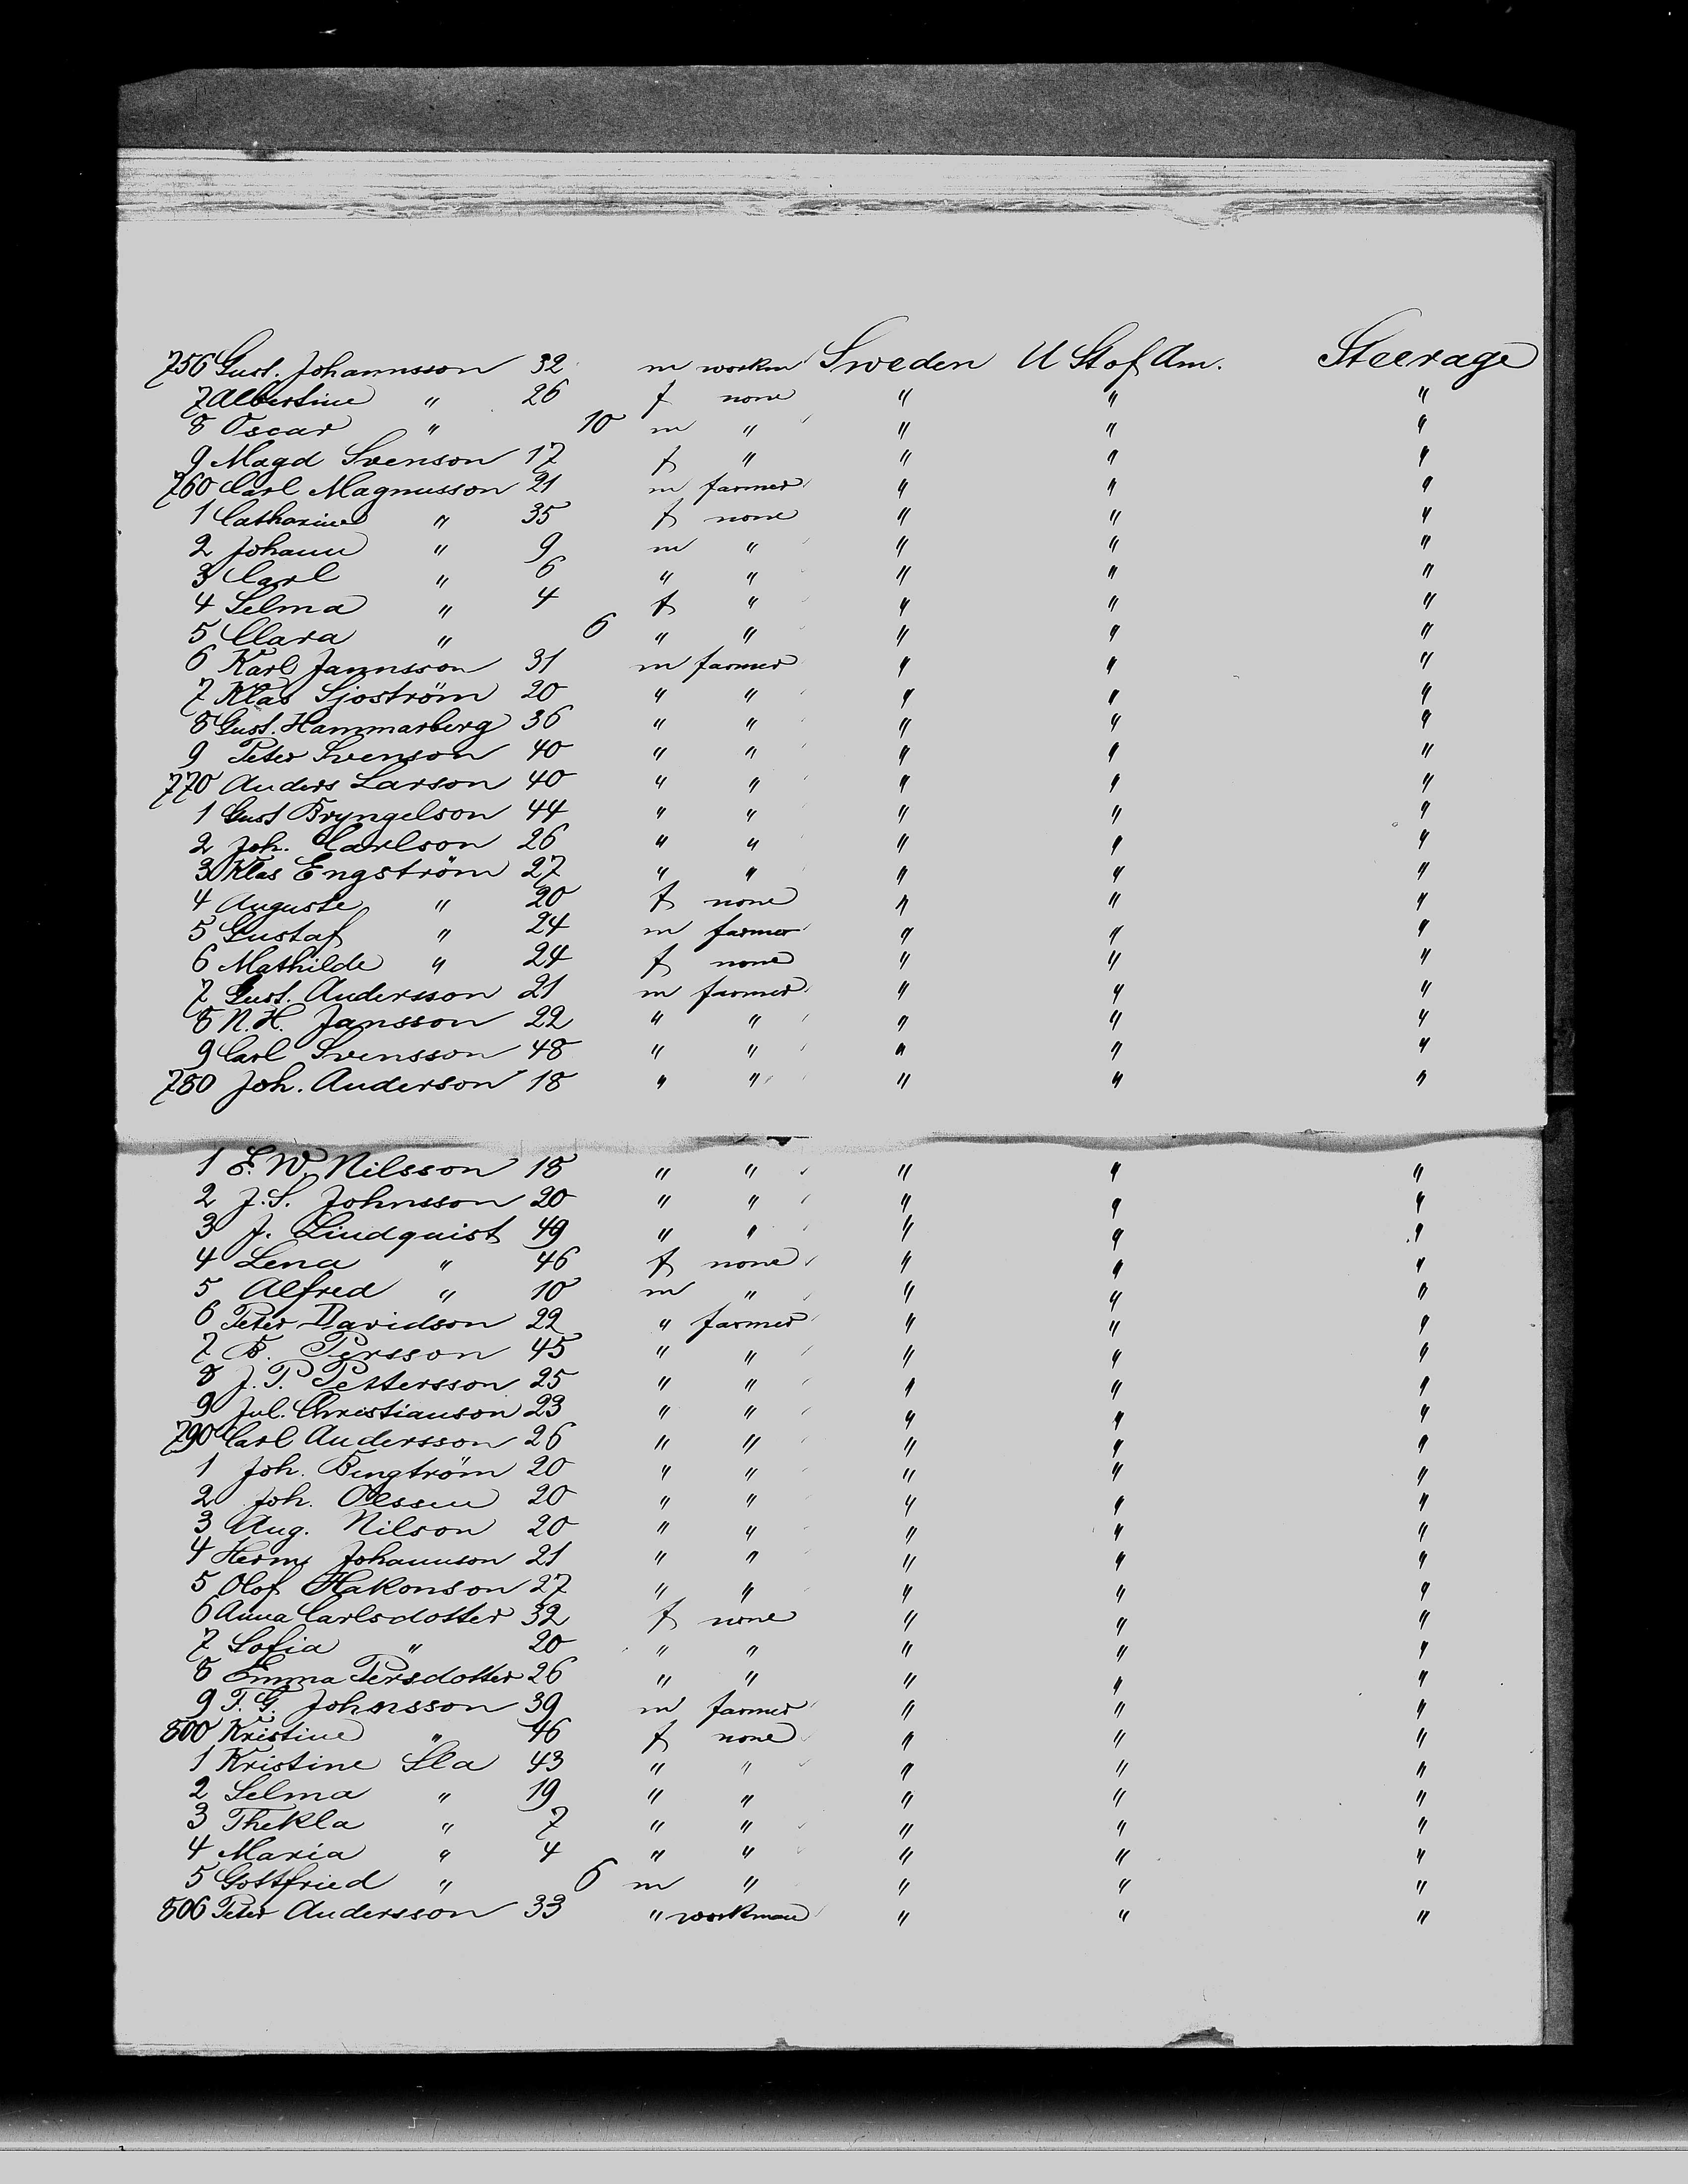 756 Gust. Johannsson 32 m workm Sweden U St of Am. Steerage
7 Albertine " 26 f none " " "
8 Oscar " 10 m " " " "
9 Magd Svenson 17 f " " " "
760 Carl Magnusson 21 m farmer " " "
1 Catharine " 35 f none " " "
2 Johann " 9 m " " " "
3 Carl " 6 " " " " "
4 Selma " 4 f " " " "
5 Clara " 6 " " " " "
6 Karl Jannsson 31 m farmer " " "
7 Klas Sjoström 20 " " " " "
8 Gust. Hammarberg 36 " " " " "
9 Peter Svenson 40 " " " " "
770 Anders Larson 40 " " " " "
1 Gust Bryngelson 44 " " " " "
2 Joh. Carlson 26 " " " " "
3 Klas Engström 27 " " " " "
4 Auguste " 20 f none " " "
5 Gustaf " 24 m farmer " " "
6 Mathilde " 24 f none " " "
7 Gust. Andersson 21 m farmer " " "
8 N. H. Jansson 22 " " " " "
9 Carl Svensson 48 " " " " "
780 Joh. Anderson 18 " " " " "
1 E. W. Nilsson 18 " " " " "
2 J. S. Johnsson 20 " " " " "
3 J. Lindquist 49 " " " " "
4 Lena " 46 f none " " "
5 Alfred " 10 m " " " "
6 Peter Davidson 22 " farmer " " "
7 B. Persson 45 " " " " "
8 J. P. Pettersson 25 " " " " "
9 Jul. Christianson 23 " " " " "
790 Carl Andersson 26 " " " " "
1 Joh. Bengtröm 20 " " " " "
2 Joh. Olssen 20 " " " " "
3 Aug. Nilson 20 " " " " "
4 Herm. Johannson 21 " " " " "
5 Olof Hakonson 27 " " " " "
6 Anna Carlsdotter 32 f none " " "
7 Sofia " 20 " " " " "
8 Emma Persdotter 26 " " " " "
9 F. G. Johnsson 39 m farmer " " "
800 Kristine " 46 f none " " "
1 Kristine Sla 43 " " " " "
2 Selma " 19 " " " " "
3 Thekla " 7 " " " " "
4 Maria " 4 " " " " "
5 Gottfried " 6 m " " " "
806 Peter Andersson 33 " workman " " "